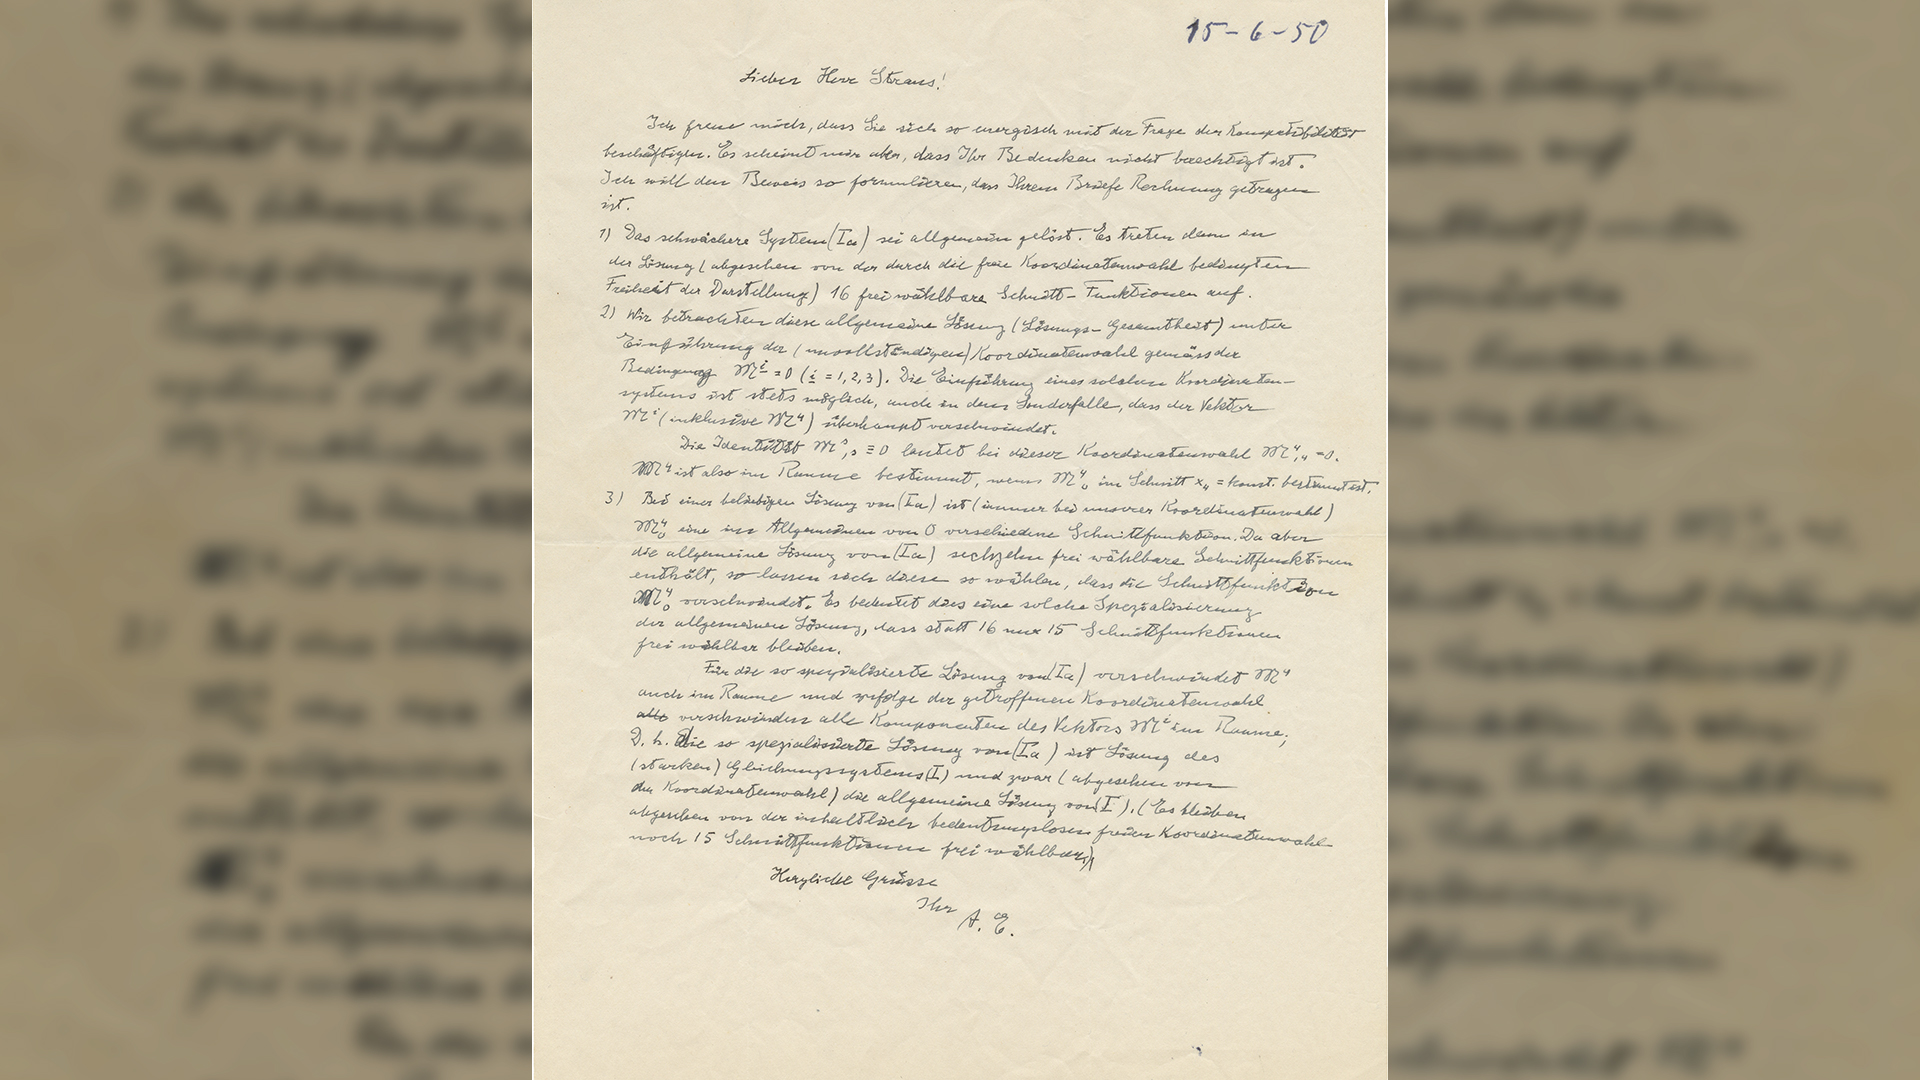 15-6-50
Lieber Herr Straus!
Ich freue mich, dass Sie sich so energisch mit der Frage der Kompatibilität
beschäftigen. Es scheint mir aber, dass Ihr Bedenken nicht berechtigt ist.
Ich will den Beweis so formulieren, dass Ihrem Briefe Rechnung getragen
ist.
1) Das schwächere System (Ia) sei allgemein gelöst. Es treten dann in
der Lösung (abgesehen von der durch die freie Koordinatenwahl bedingten
Freiheit der Darstellung) 16 frei wählbare Schnitt-Funktionen auf.
2) Wir betrachten diese allgemeine Lösung (Lösungs-Gesamtheit) unter
Einführung der (unvollständigen) Koordinatenwahl gemäss der
Bedingung 𝔐^i = 0 (i = 1, 2, 3). Die Einführung eines solchen Koordinaten-
systems ist stets möglich, auch in dem Sonderfalle, dass der Vektor
𝔐^i (inklusive 𝔐^4) überhaupt verschwindet.
Die Identität 𝔐^s,s ≡ 0 lautet bei dieser Koordinatenwahl 𝔐^4,4 = 0.
𝔐^4 ist also im Raume bestimmt, wenn 𝔐^4_0 im Schnitt x_4 = konst. bestimmt ist.
3) Bei einer beliebigen Lösung von (Ia) ist (immer bei unserer Koordinatenwahl)
𝔐^4_0 eine im Allgemeinen von 0 verschiedene Schnittfunktion. Da aber
die allgemeine Lösung von (Ia) sechzehn frei wählbare Schnittfunktionen
enthält, so lassen sich diese so wählen, dass die Schnittfunktion
𝔐^4_0 verschwindet. Es bedeutet dies eine solche Spezialisierung
der allgemeinen Lösung, dass statt 16 nur 15 Schnittfunktionen
frei wählbar bleiben.
Für die so spezialisierte Lösung von (Ia) verschwindet 𝔐^4
auch im Raume und zufolge der getroffenen Koordinatenwahl
verschwinden alle Komponenten des Vektors 𝔐^i im Raume;
D. h. Die so spezialisierte Lösung von (Ia) ist Lösung des
(starken) Gleichungssystems (I) und zwar (abgesehen von
der Koordinatenwahl) die allgemeine Lösung von (I). (Es bleiben
abgesehen von der inhaltlich bedeutungslosen freien Koordinatenwahl
noch 15 Schnittfunktionen frei wählbar.)
Herzliche Grüsse
Ihr
A. E.